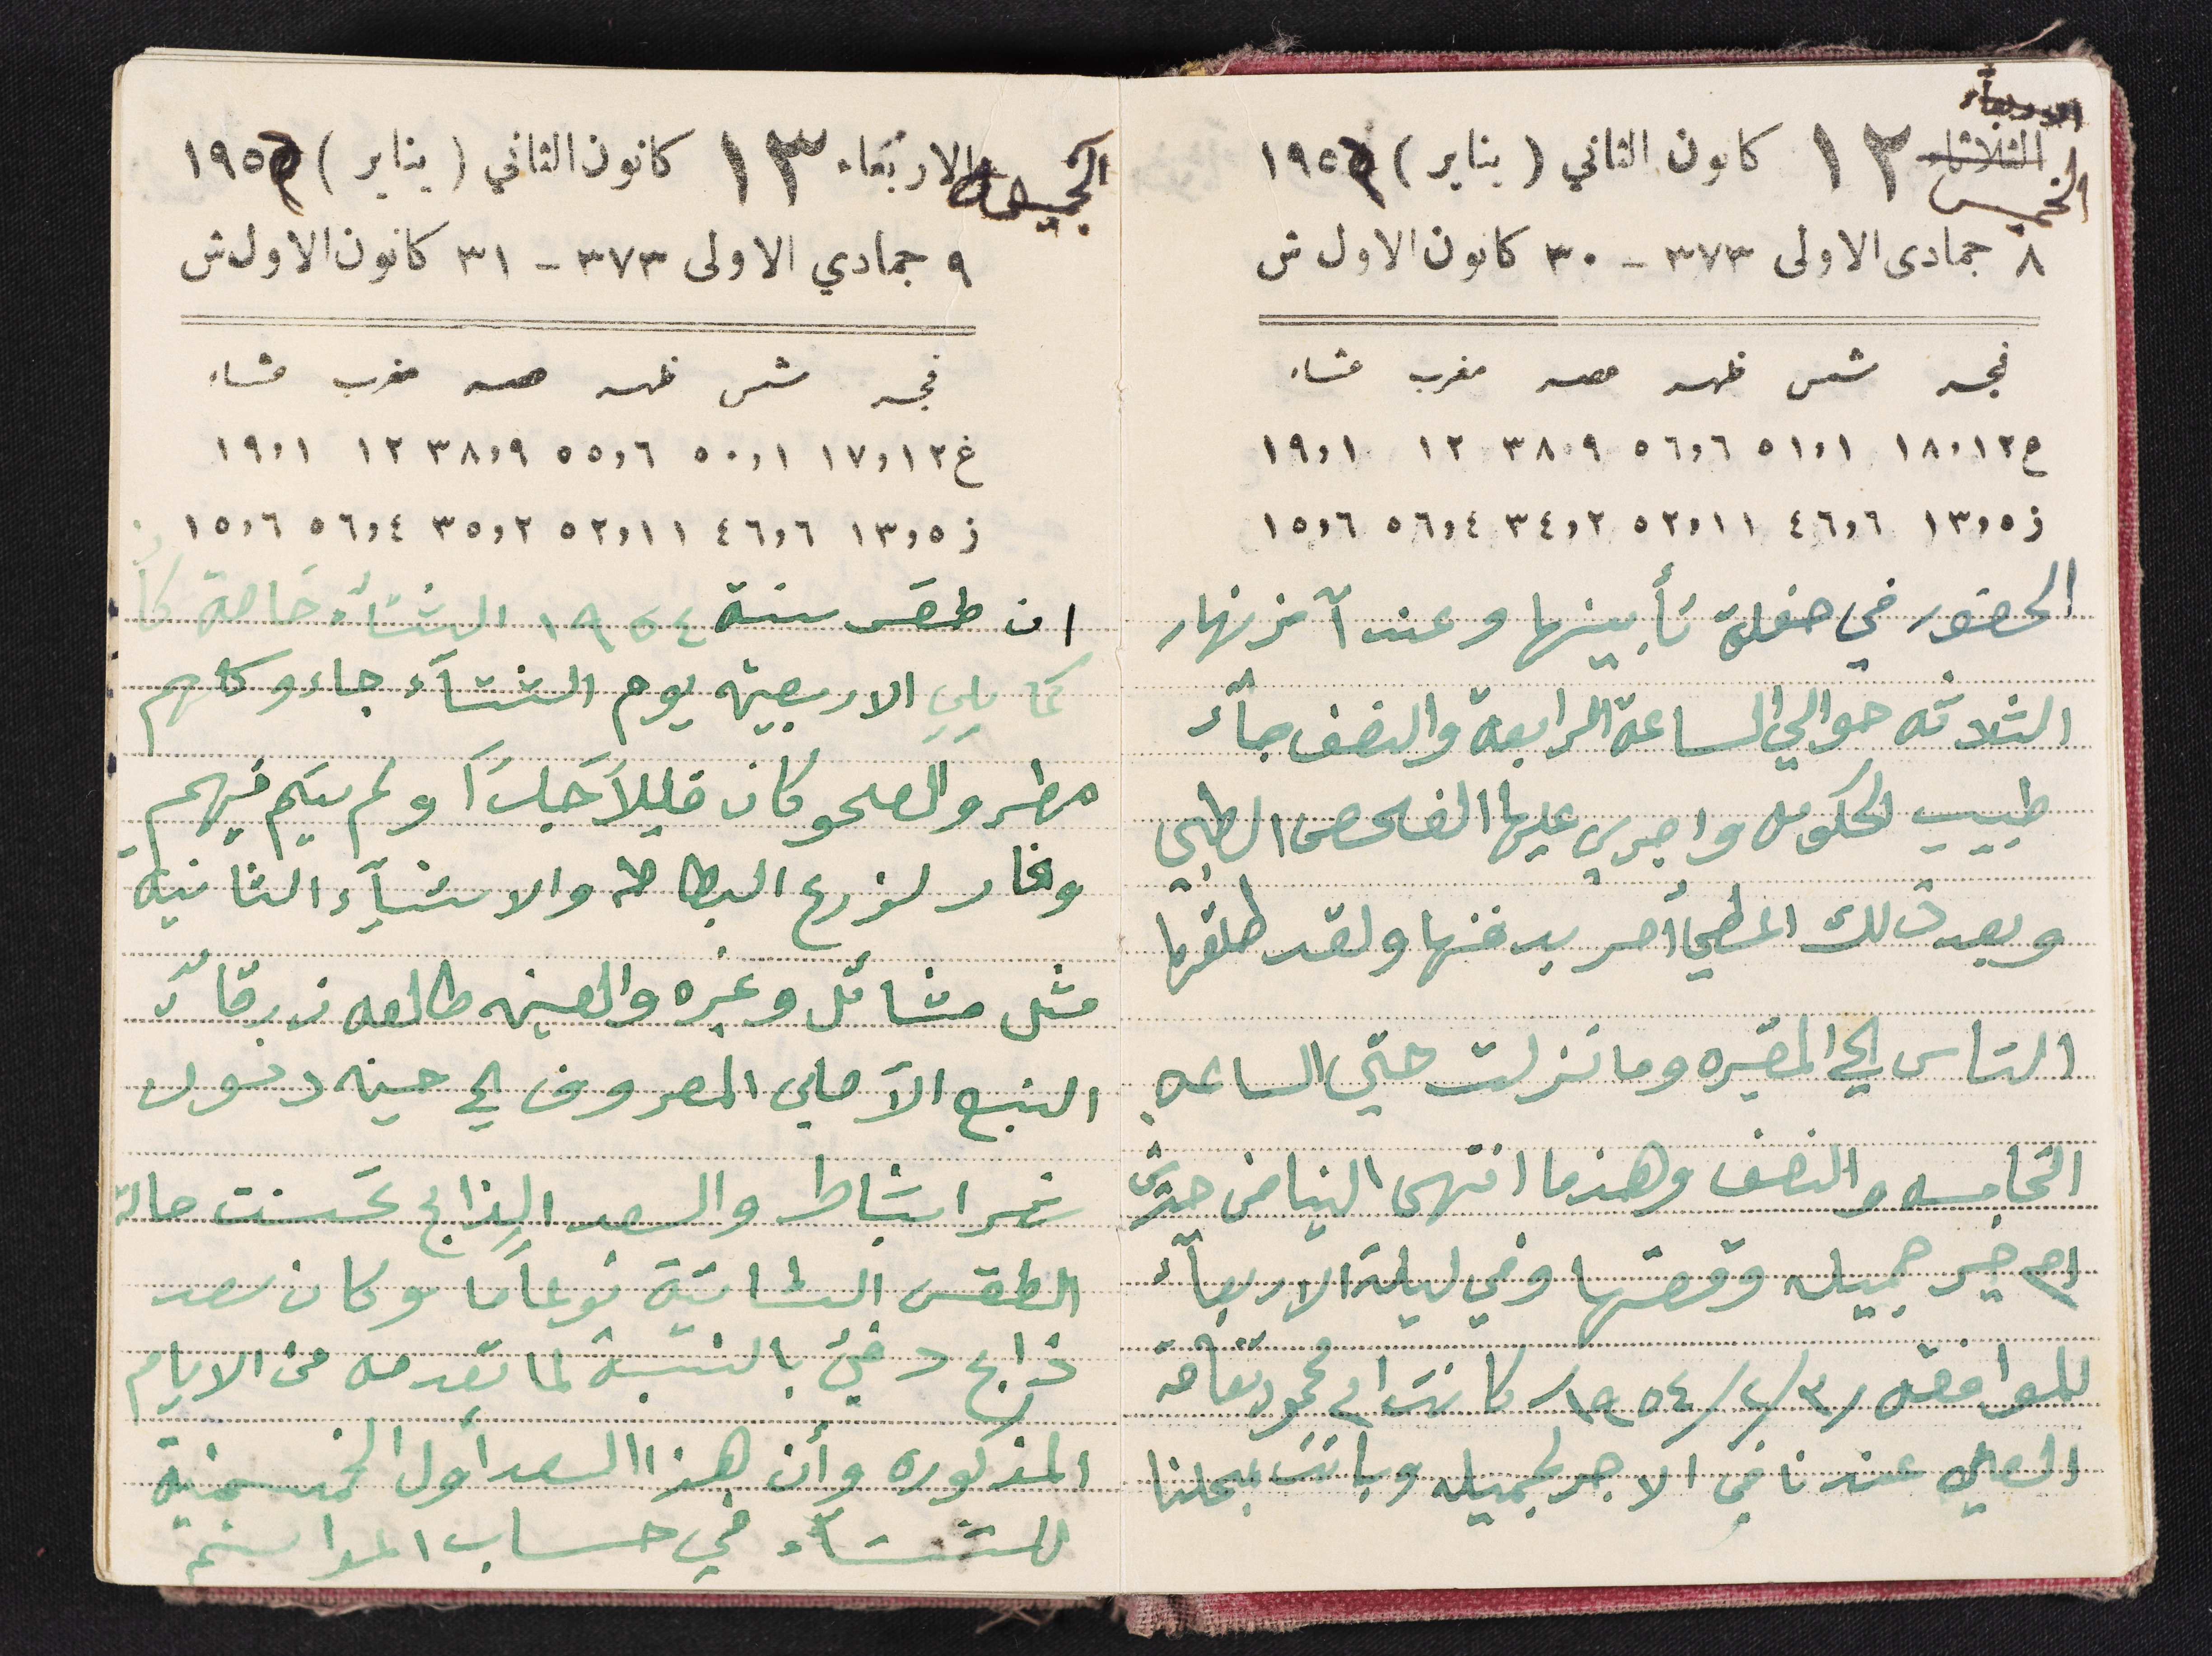 الاربعاء
الثلاثاء ١٢ كانون الثاني ( يناير ) ١٩٥
الخميس
٨ جمادى الاولى ٣٧٣ - ٣٠ كانون الاول ش
فجر شمس ظهر عصر مغرب عشاء
ع ١٨,١٢ ٥١,١ ٥٦,٦ ٣٨,٩ ١٢ ١٩,١
ز ١٣,٥ ٤٦,٦ ٥٢,١١ ٣٤,٢ ٥٦,٤ ١٥,٦
الحضور في حفلة تأبينها وعند آخر نهار
الثلاثه حوالي الساعة الرابعة والنصف جاء
طبيب الحكومه واجري عليها الفحص الطبي
وبعد ذلك أمر بدفنها ولقد
الناس الي المقبره وما نزلت حتي الساعه
الخامسه والنصف وهنما انتهى
ام جميله وقصتها وفي ليلة الاربعآء
للموافقه ٣/٢/١٩٥٤/ كانت ام محمود
عندنا في الاجر لجميله وباتت
الجمعه الاربعاء ١٣ كانون الثاني ( يناير ) ١٩٥
٩ جمادي الاولى ٣٧٣ - ٣١ كانون الاول ش
فجر شمس ظهر عصر مغرب عشاء
غ ١٧,١٢ ٥٠,١ ٥٥,٦ ٣٨,٩ ١٢ ١٩,١
ز ١٣,٥ ٤٦,٦ ٥٢,١١ ٣٥,٢ ٥٦,٤ ١٥,٦
ان طقس سنة ١٩٥٤ الشتاء خاصة كان
كما يلي الاربعينه يوم الشتآء جاءو كلهم
مطر والصحو كان قليلاً جداً ولم يتم فيهم
لزرع البطاطه والاشيآء الثانيه
مثل مشاتل وغيره والعين طالعه زرقاء
النبع الآصلي المعروف الي حين دخول
شهر اشباط والسعد الذابح تحسنت حالة
الطقس نوعاً ما وكان سعد
ذابح دفئ بالنسبة لما تقدمه من الايام
المذكوره وأن هذا السعد أول الخمسينية
للشتاء في حساب المواسم